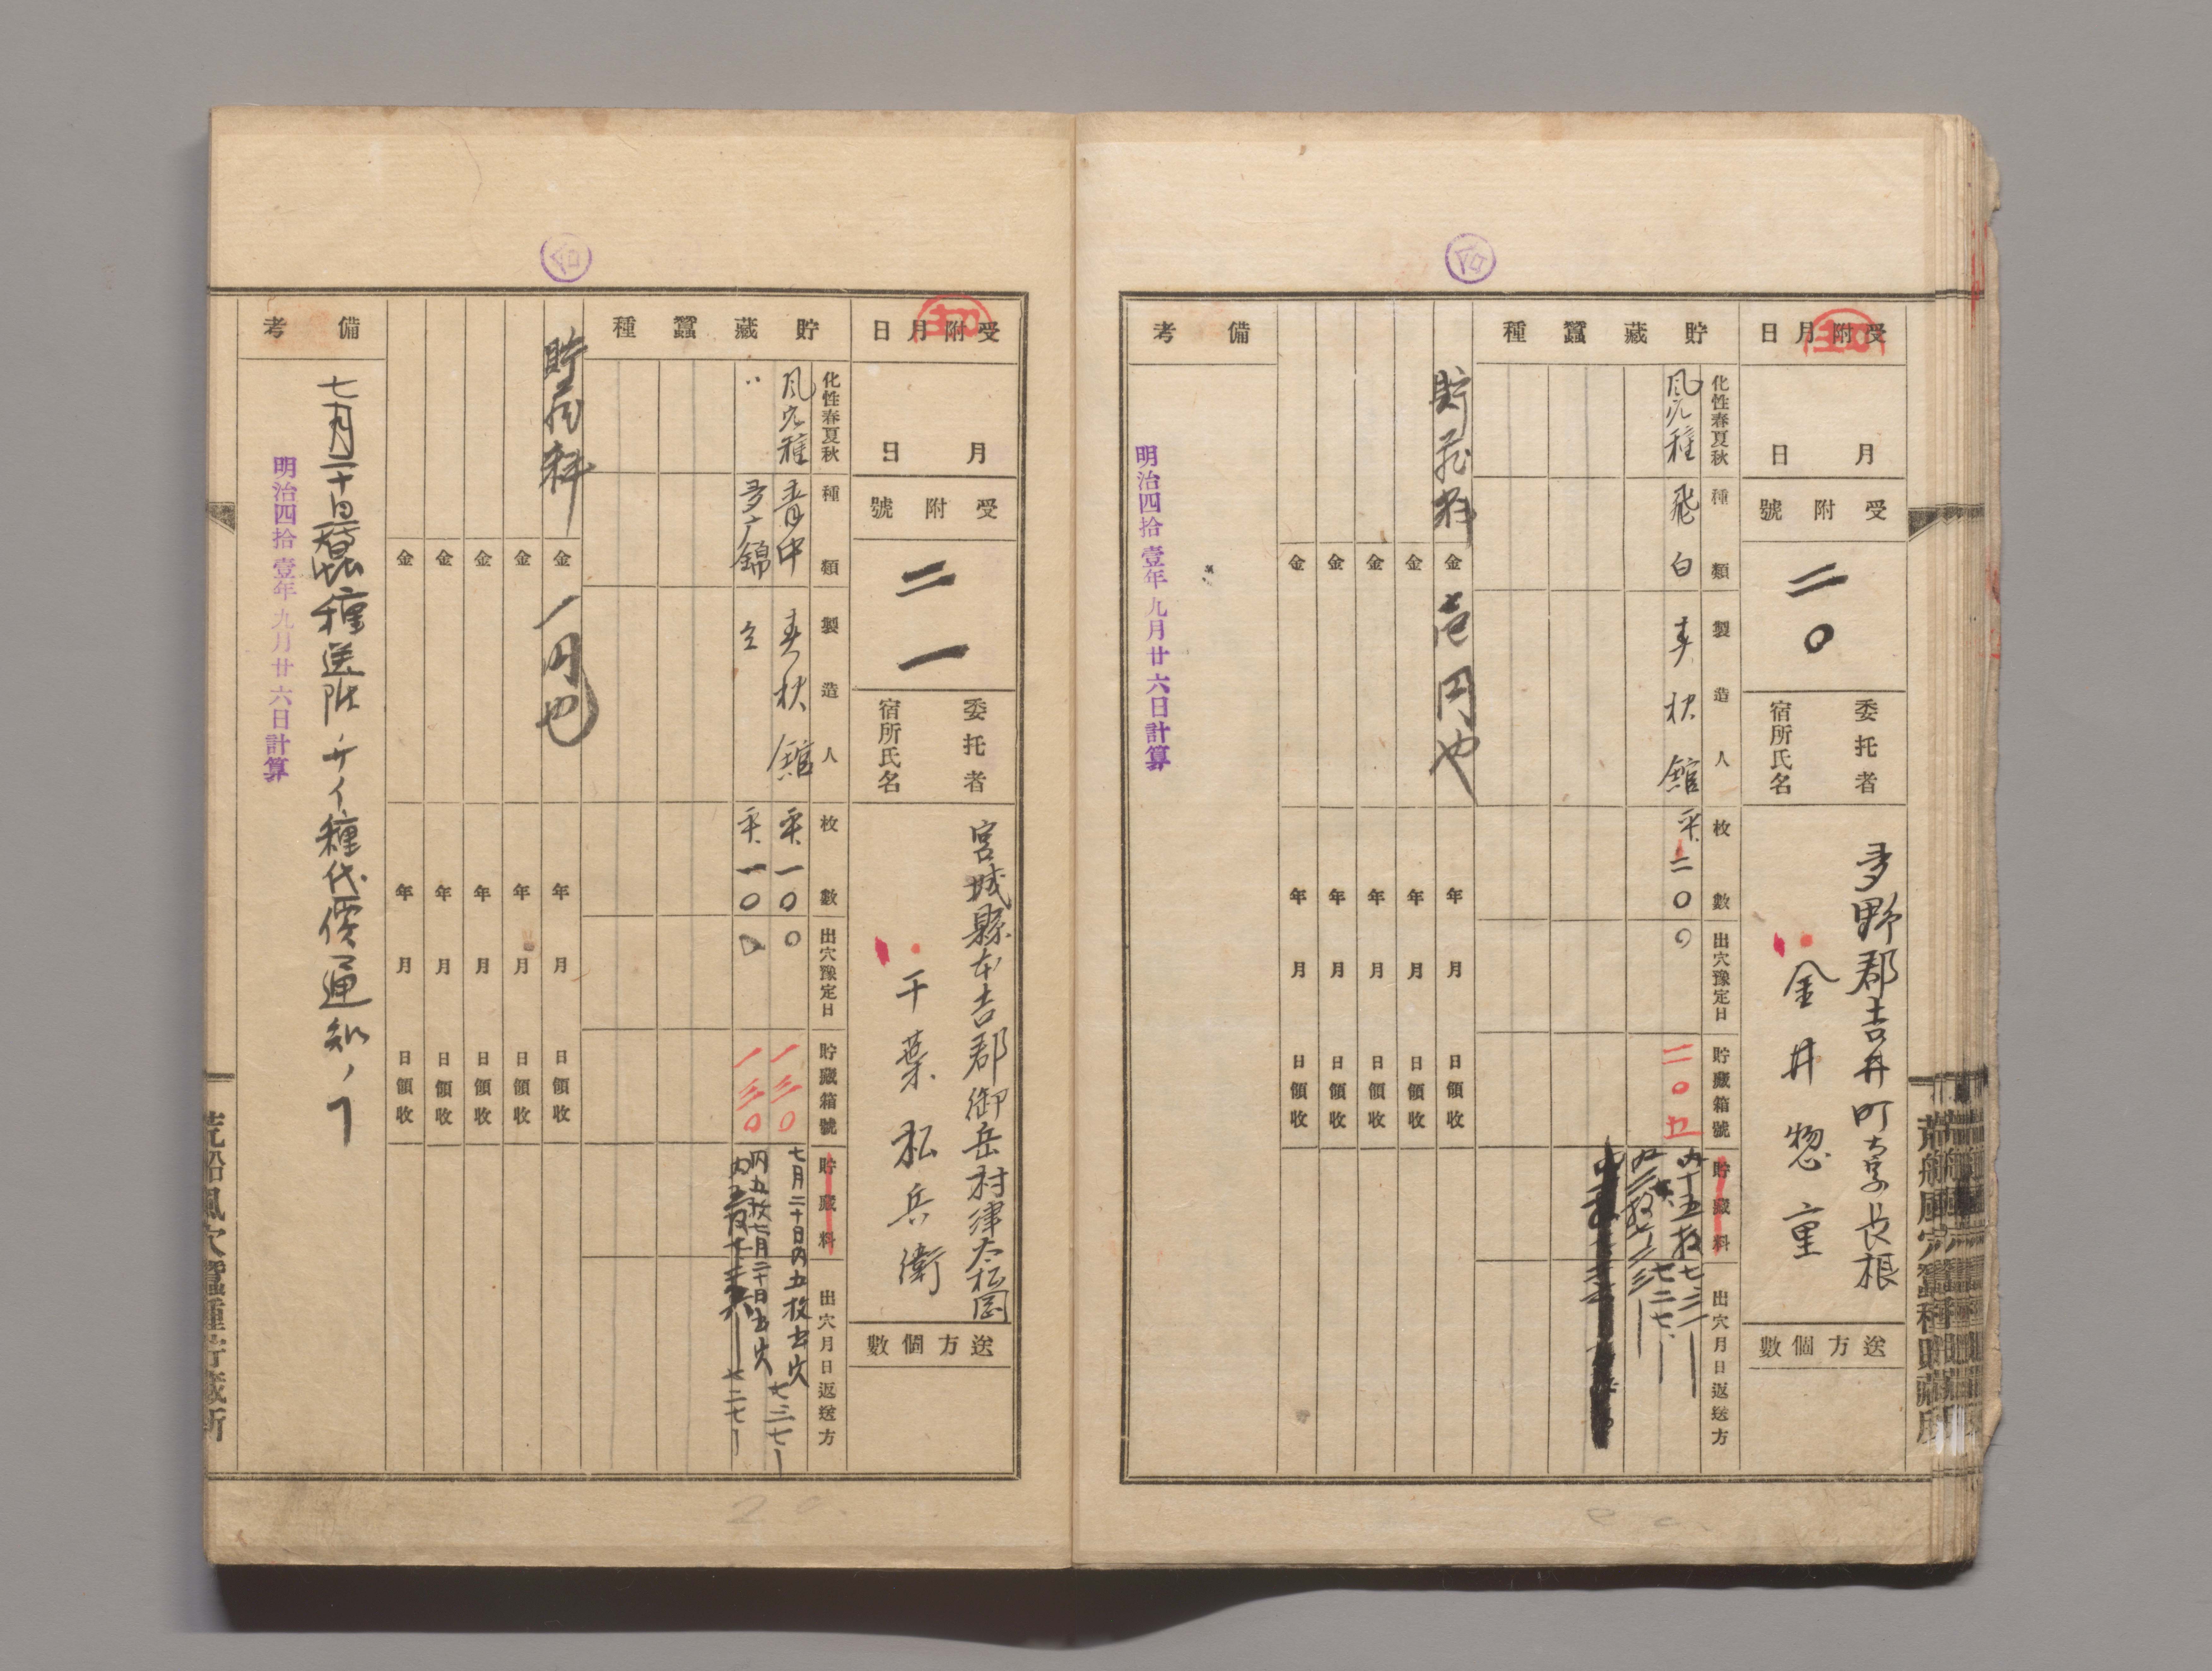 受附月日
月
日
受附號
二〇
委托者
宿所氏名
多野郡吉井町大字長根
金井惣重
送方個數
貯藏蠶種
化性春夏秋
種類
製造人
枚數
出穴豫定日
貯藏箱號
貯藏料
出穴月日返送方
風穴種
飛白
春秋館
平二〇
〇
二〇五
内十五枚七、三一
七二七、
貯蔵料
金壱円也
年月日領收
金
年月日領收
金
年月日領收
金
年月日領收
金
年月日領收
備考
明治四拾壹年九月廿六日計算
合
受附月日
月
日
受附號
二一
委托者
宿所氏名
宮城縣本吉郡御岳村津谷松岡
千葉私兵衛
送方個數
貯藏蠶種
化性春夏秋
種類
製造人
枚數
出穴豫定日
貯藏箱號
貯藏料
出穴月日返送方
風穴種
青中
春秋館
平一〇
〇
一三〇
七月二十日内五枚出穴
七三七
〃
多广錦
仝
平一〇
〇
一三〇
内五枚七月二十日出穴
七二七
貯蔵料
金一円也
年月日領收
金
年月日領收
金
年月日領收
金
年月日領收
金
年月日領收
備考
七月二十日蠶種送附サイ種代價通知ノヿ
明治四拾壹年九月廿六日計算
合
荒船風穴蠶種貯藏所